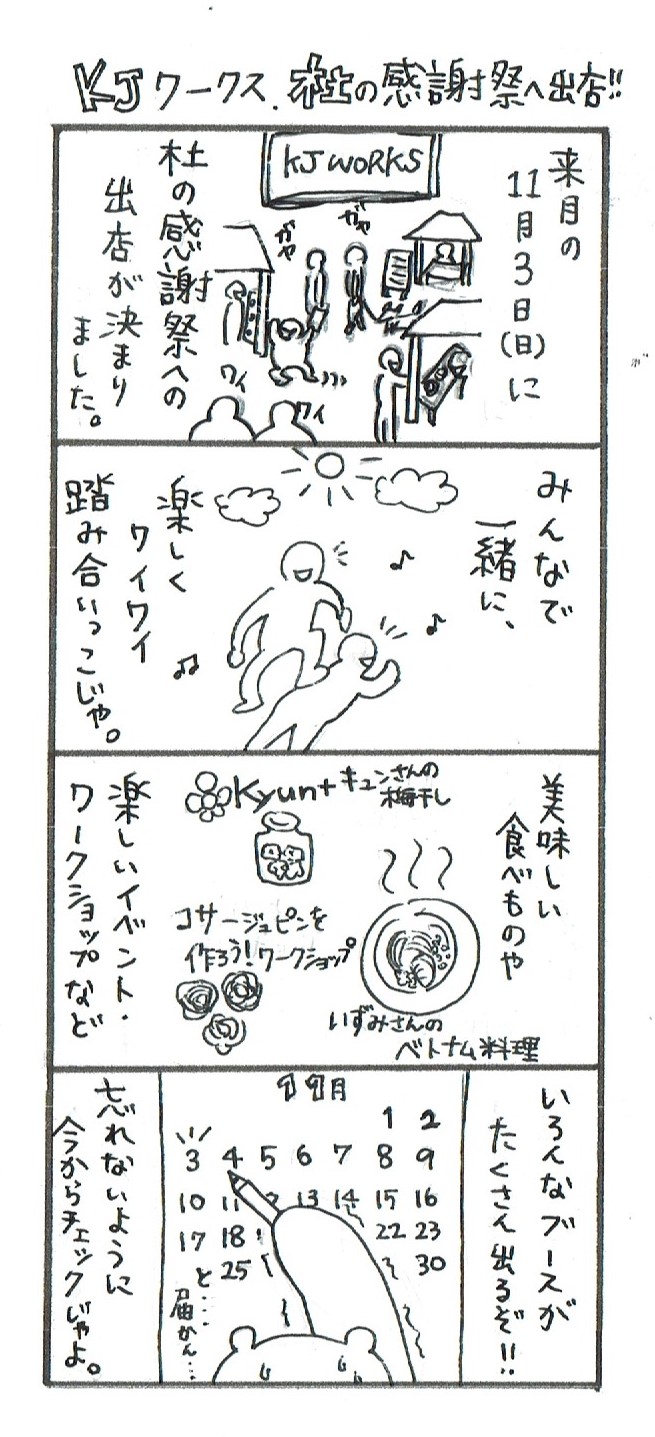 KJワークス、杜の感謝祭へ出店!!
来月の
11月3日(日)に
KJ WORKS
ガヤ
ガヤ
ワイ
ワイ
杜の感謝祭への
出店が決まり
ました。
みんなで
一緒に、
楽しく
ワイワイ
踏み合いっこじゃ。
美味しい
食べものや
Kyun+
キュンさんの
梅干し
コサージュピンを
作ろう!ワークショップ
いずみさんの
ベトナム料理
楽しいイベント・
ワークショップなど
いろんなブースが
たくさん出るぞ!!
11月
1 2
3 4 5 6 7 8 9
10 11 13 14 15 16
17 18 22 23
25 30
と…
届かん…
忘れないように
今からチェックじゃよ。